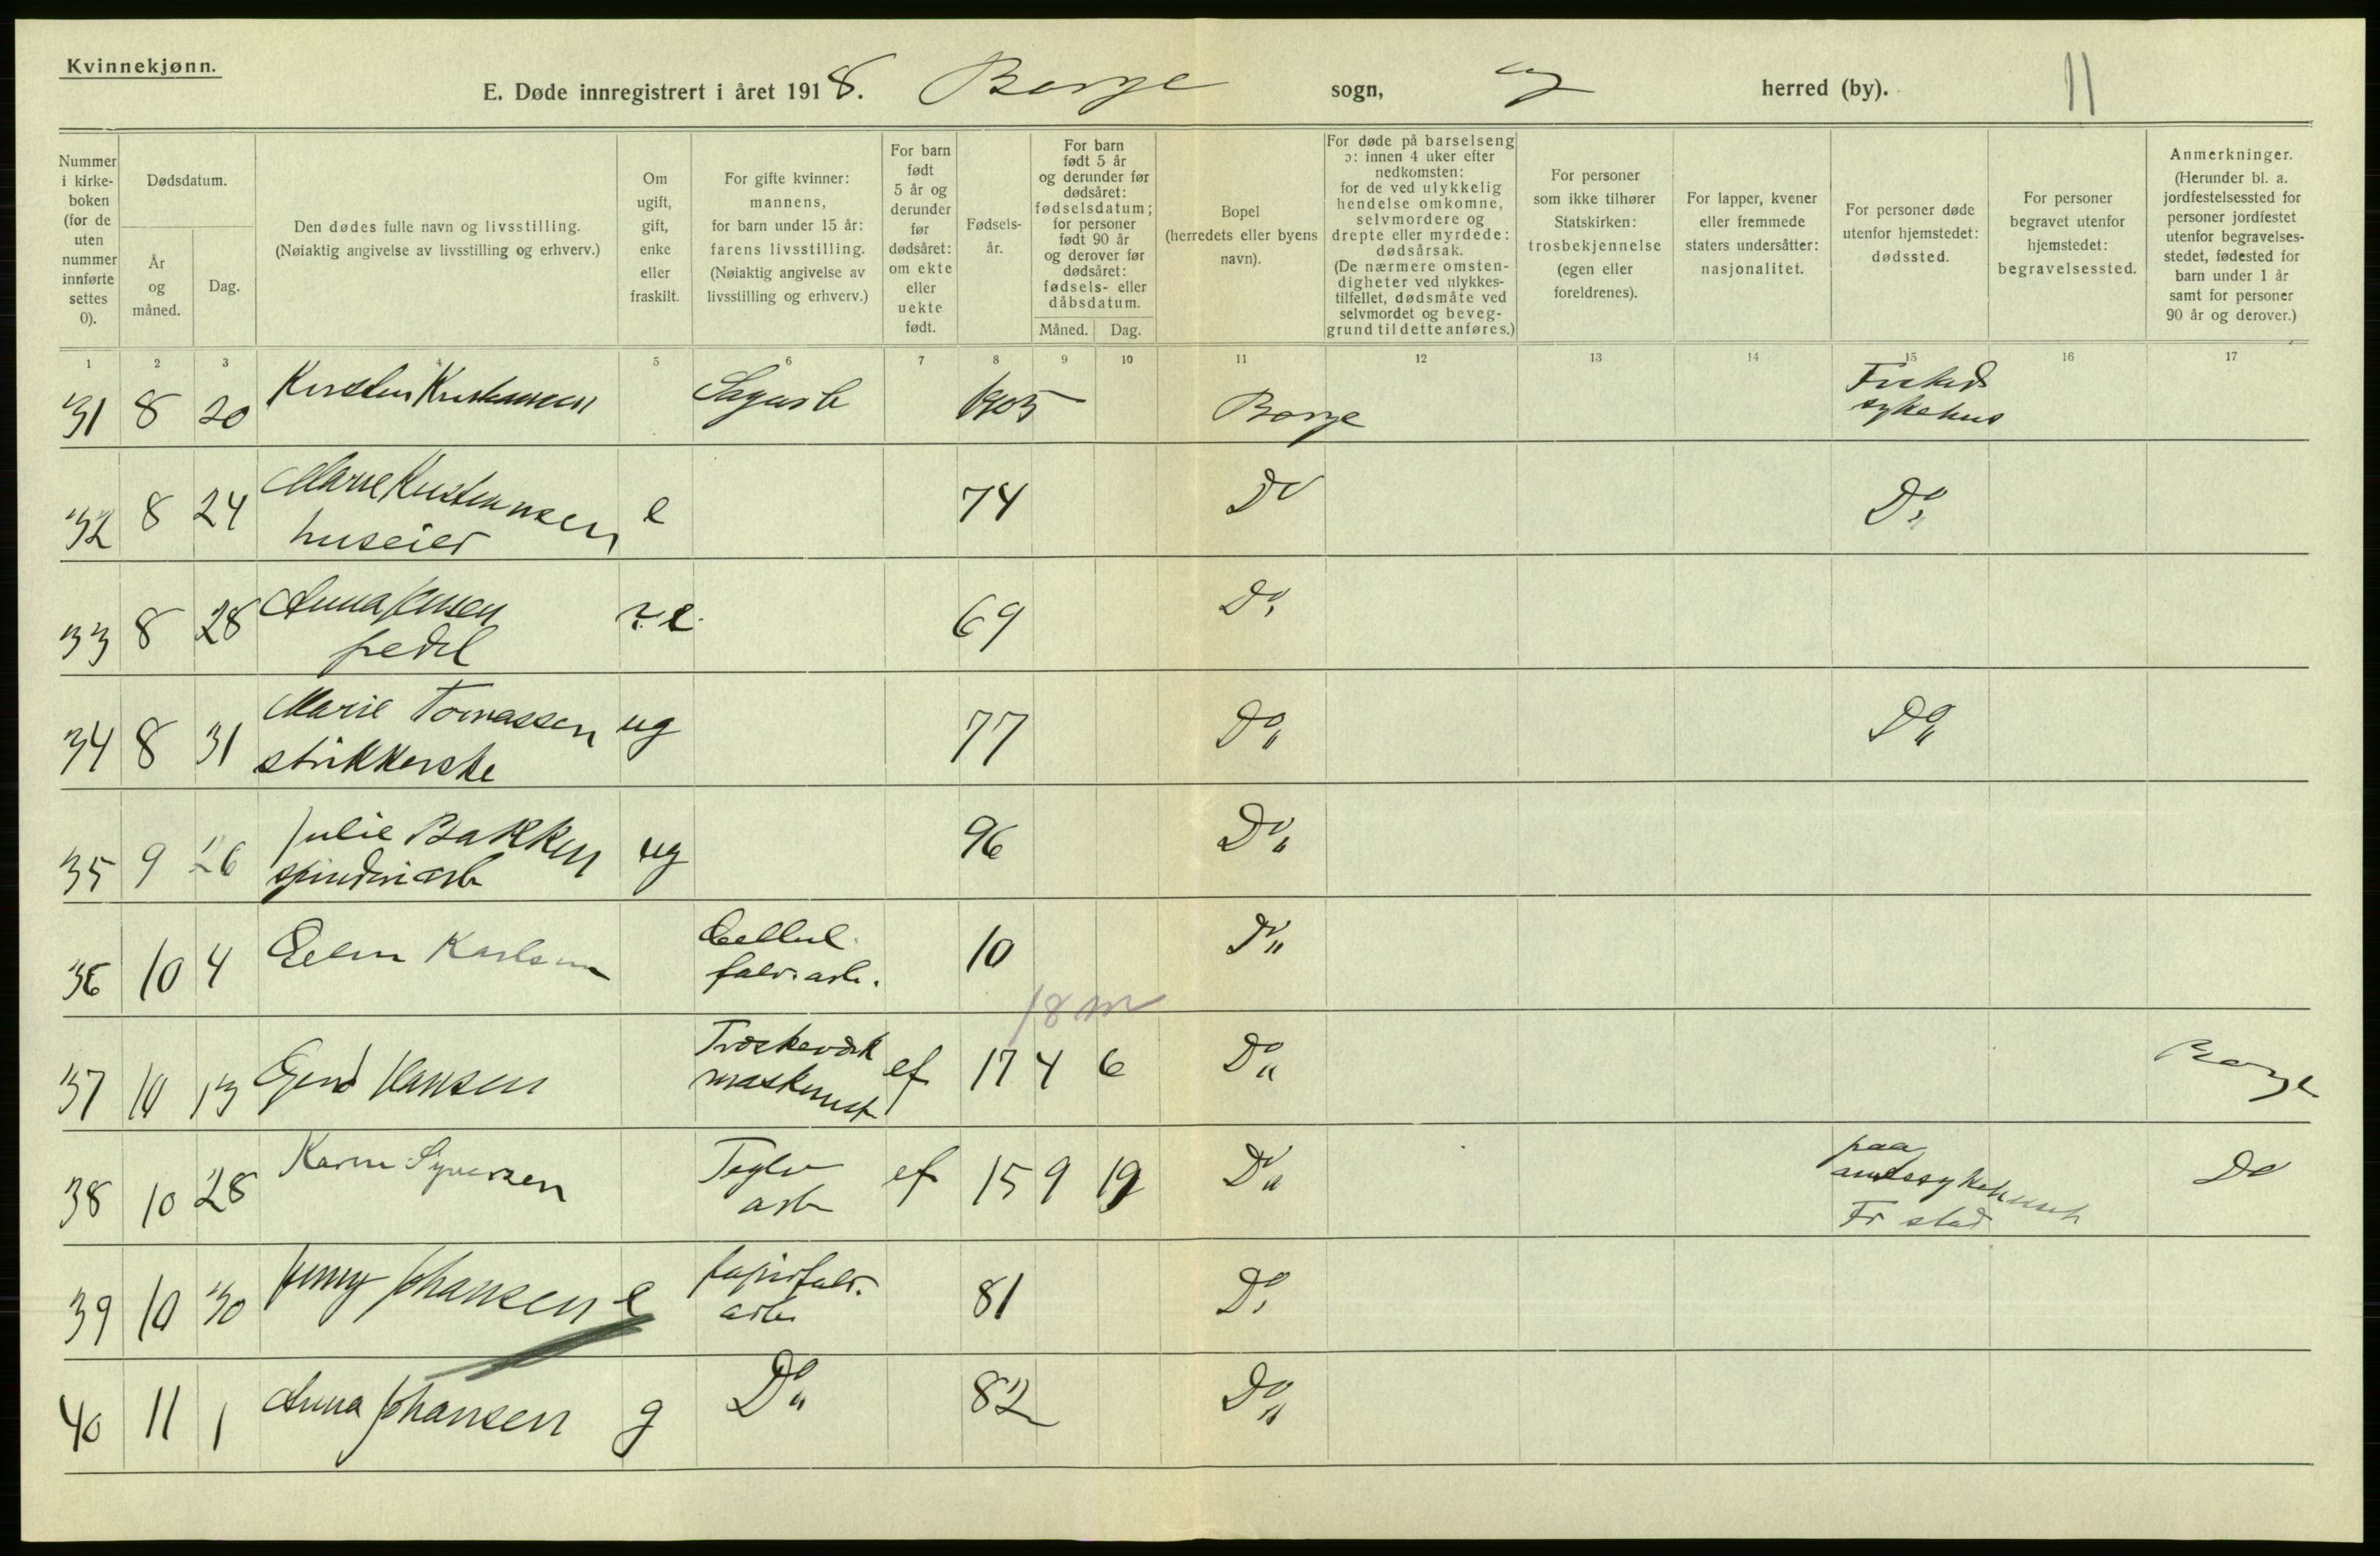 Kvinnekjønn.
E. Døde innregistrert i året 1918. Borge sogn, og herred (by). 11
Nummer i kirkeboken (for de uten nummer innførte settes 0).
Dødsdatum.
År og måned.
Dag.
Den dødes fulle navn og livsstilling.
(Nøiaktig angivelse av livsstilling og erhverv.)
Om ugift, gift, enke eller fraskilt.
For gifte kvinner: mannens, for barn under 15 år: farens livsstilling. (Nøiaktig angivelse av livsstilling og erhverv.)
For barn født 5 år og derunder før dødsåret: om ekte eller uekte født.
Fødselsår.
For barn født 5 år og derunder før dødsåret: fødselsdatum; for personer født 90 år og derover før dødsåret: fødsels- eller dåbsdatum.
Måned. Dag.
Bopel (herredets eller byens navn).
For døde på barselseng ɔ: innen 4 uker efter nedkomsten: for de ved ulykkelig hendelse omkomne, selvmordere og drepte eller myrdede: dødsårsak. (De nærmere omstendigheter ved ulykkestilfellet, dødsmåte ved selvmordet og beveggrund til dette anføres.)
For personer som ikke tilhører Statskirken: trosbekjennelse (egen eller foreldrenes).
For lapper, kvener eller fremmede staters undersåtter: nasjonalitet.
For personer døde utenfor hjemstedet: dødssted.
For personer begravet utenfor hjemstedet: begravelsessted.
Anmerkninger. (Herunder bl. a. jordfestelsessted for personer jordfestet utenfor begravelsesstedet, fødested for barn under 1 år samt for personer 90 år og derover.)
1 2 3 4 5 6 7 8 9 10 11 12 13 14 15 16 17
31 8 20 Kirsten Kristiansen Sagarb 1905 Borge Frstad sykehus
32 8 24 Marie Kristiansen e 74 Do Do
huseier
33 8 28 Anna Jensen ? e. 69 Do
34 8 31 Marie Tomassen ug 77 Do Do
strikkerske
35 9 26 Julie Bakken ug 96 Do
spinderiarb
36 10 4 Karlsen Cellul. 10 Do
fabr. arb.
18 m
37 10 13 Hansen Træskeværk ef 17 4 6 Do Borge
maskinist
38 10 28 Karin Syversen Teglv ef 15 9 19 Do paa Do
arb amtssykehuset
Fr stad
39 10 30 Jenny Johansen e papirfabr. 81 Do
arb.
40 11 1 Anna Johansen g Do 82 Do